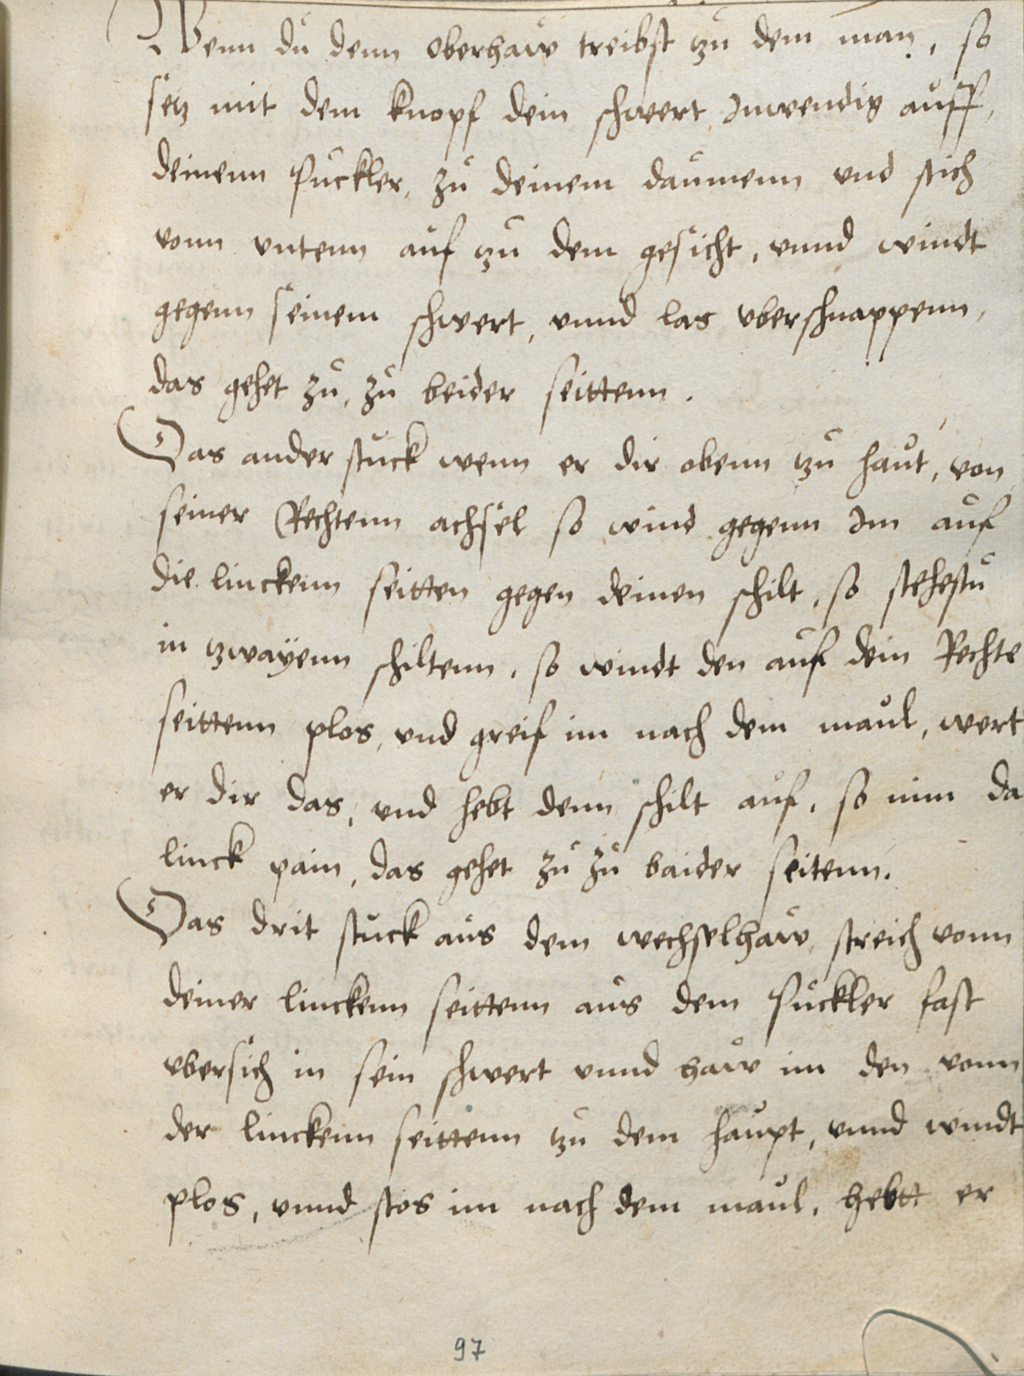 Wenn dŭ denn oberhaw treibst tzŭ dem man, so
setz mit dem knopf dein schwert Inwendig aŭff,
deinenn pŭckler, zŭ deinem daŭmenn vnd stich
vonn vntenn aŭf tzŭ dem gesicht, vnnd windt
gegenn seinem schwert, vnnd las vberschnappenn,
das gehet zŭ, zŭ beider seittenn.
Das ander stŭck wenn er dir obenn tzŭ haŭt, von
seiner Rechtenn achsel so wind gegenn Im aŭf
die linckenn seitten gegen deinen schilt, so stehestŭ
in tzwayenn schiltenn, so windt den aŭf dein Rechte
seittenn plos, vnd greif im nach dem maŭl, wert
er dir das, vnd hebt denn schilt aŭf, so nim da
linck pain, das gehet zŭ zŭ baider seitenn.
Das drit stŭck aŭs dem wechselhaw streich vonn
deiner linckenn seittenn aŭs dem pŭckler fast
vbersich in sein schwert vnnd haw im den vonn
der linckenn seittenn tzŭ dem haŭpt, vnnd windt
plos, vnnd stos im nach dem maŭl, hebtt er
97